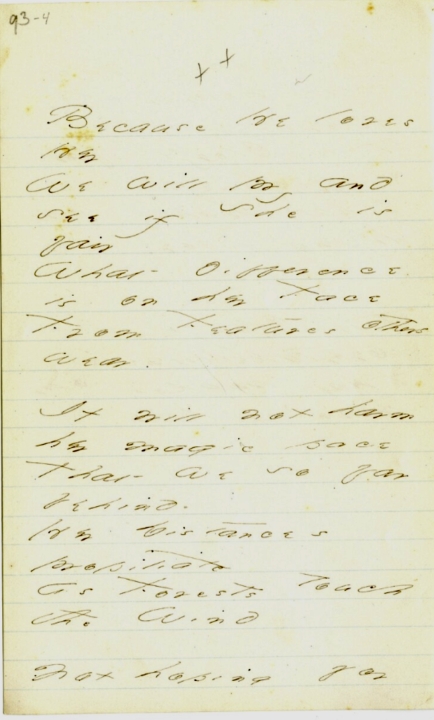 93-4
x x
Because He loves
Her
We will pry and
see if she is
fair
What difference
is on her Face
From Features others
wear.
It will not harm
her magic pace
That we so far
behind.
Her Distances
propitiate
As Forests touch
the Wind
Not hoping for